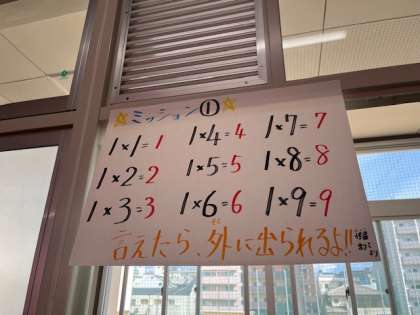 ☆ミッション①☆
1×1=1 1×4=4 1×7=7
1×2=2 1×5=5 1×8=8
1×3=3 1×6=6 1×9=9
言えたら、外に出られるよ!!
そと
より